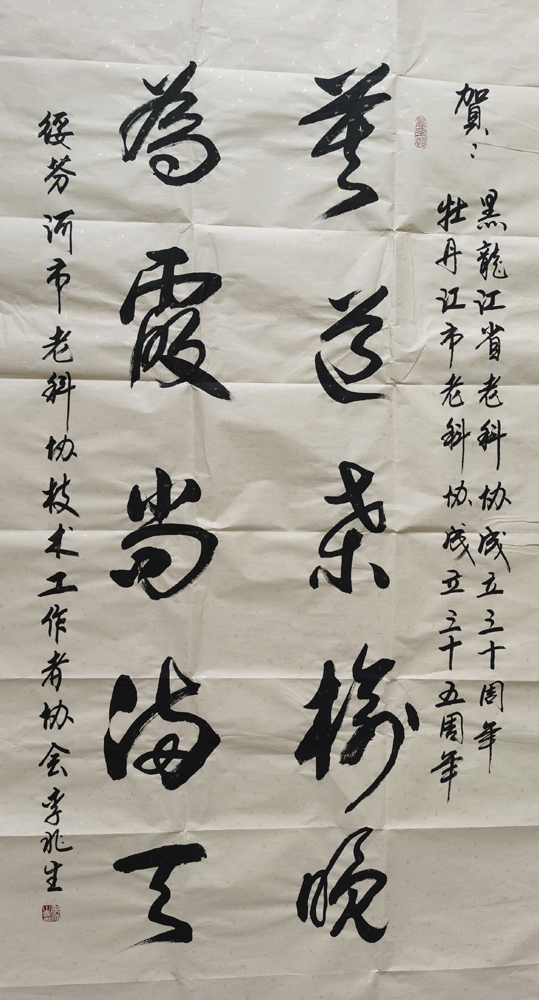 賀：
黑龍江省老科协成立三十周年
牡丹江市老科协成立三十五周年
莫道桑榆晚
為霞尚满天
绥芬河市老科协技术工作者协会李兆生